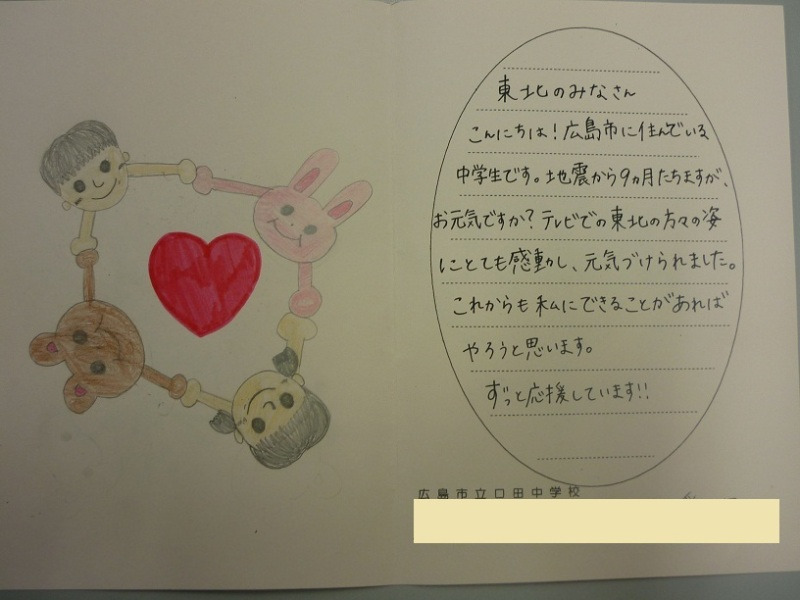 東北のみなさん
こんにちは!広島市に住んでいる
中学生です。地震から9ヵ月たちますが、
お元気ですか?テレビでの東北の方々の姿
にとても感動し、元気づけられました。
これからも私にできることがあれば
やろうと思います。
ずっと応援しています!!
広島市立口田中学校